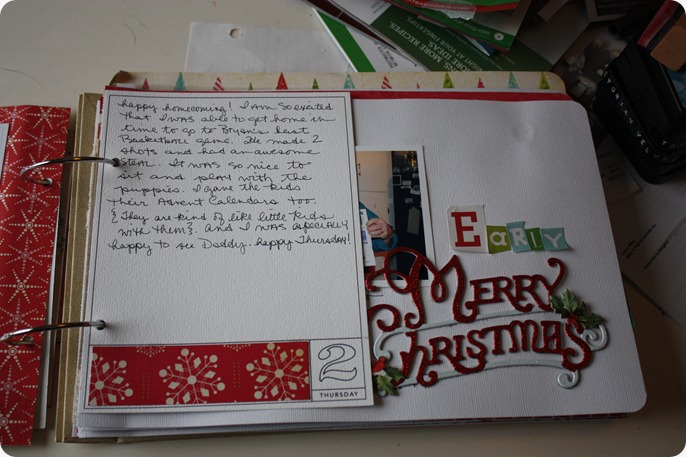 happy homecoming! I am so excited
that I was able to get home in
time to go to Bryan's last
Basketball game. He made 2
shots and had an awesome
steal. It was so nice to
sit and play with the
puppies. I gave the kids
their Advent Calendars too.
{They are kind of like little kids
with them}. And I was especially
happy to see Daddy. happy Thursday!
2
THURSDAY
EARLY
MERRY
CHRISTMAS
MORE RECIPES.
MORE IDEAS.
RIGHT AT YOUR FINGERTIPS